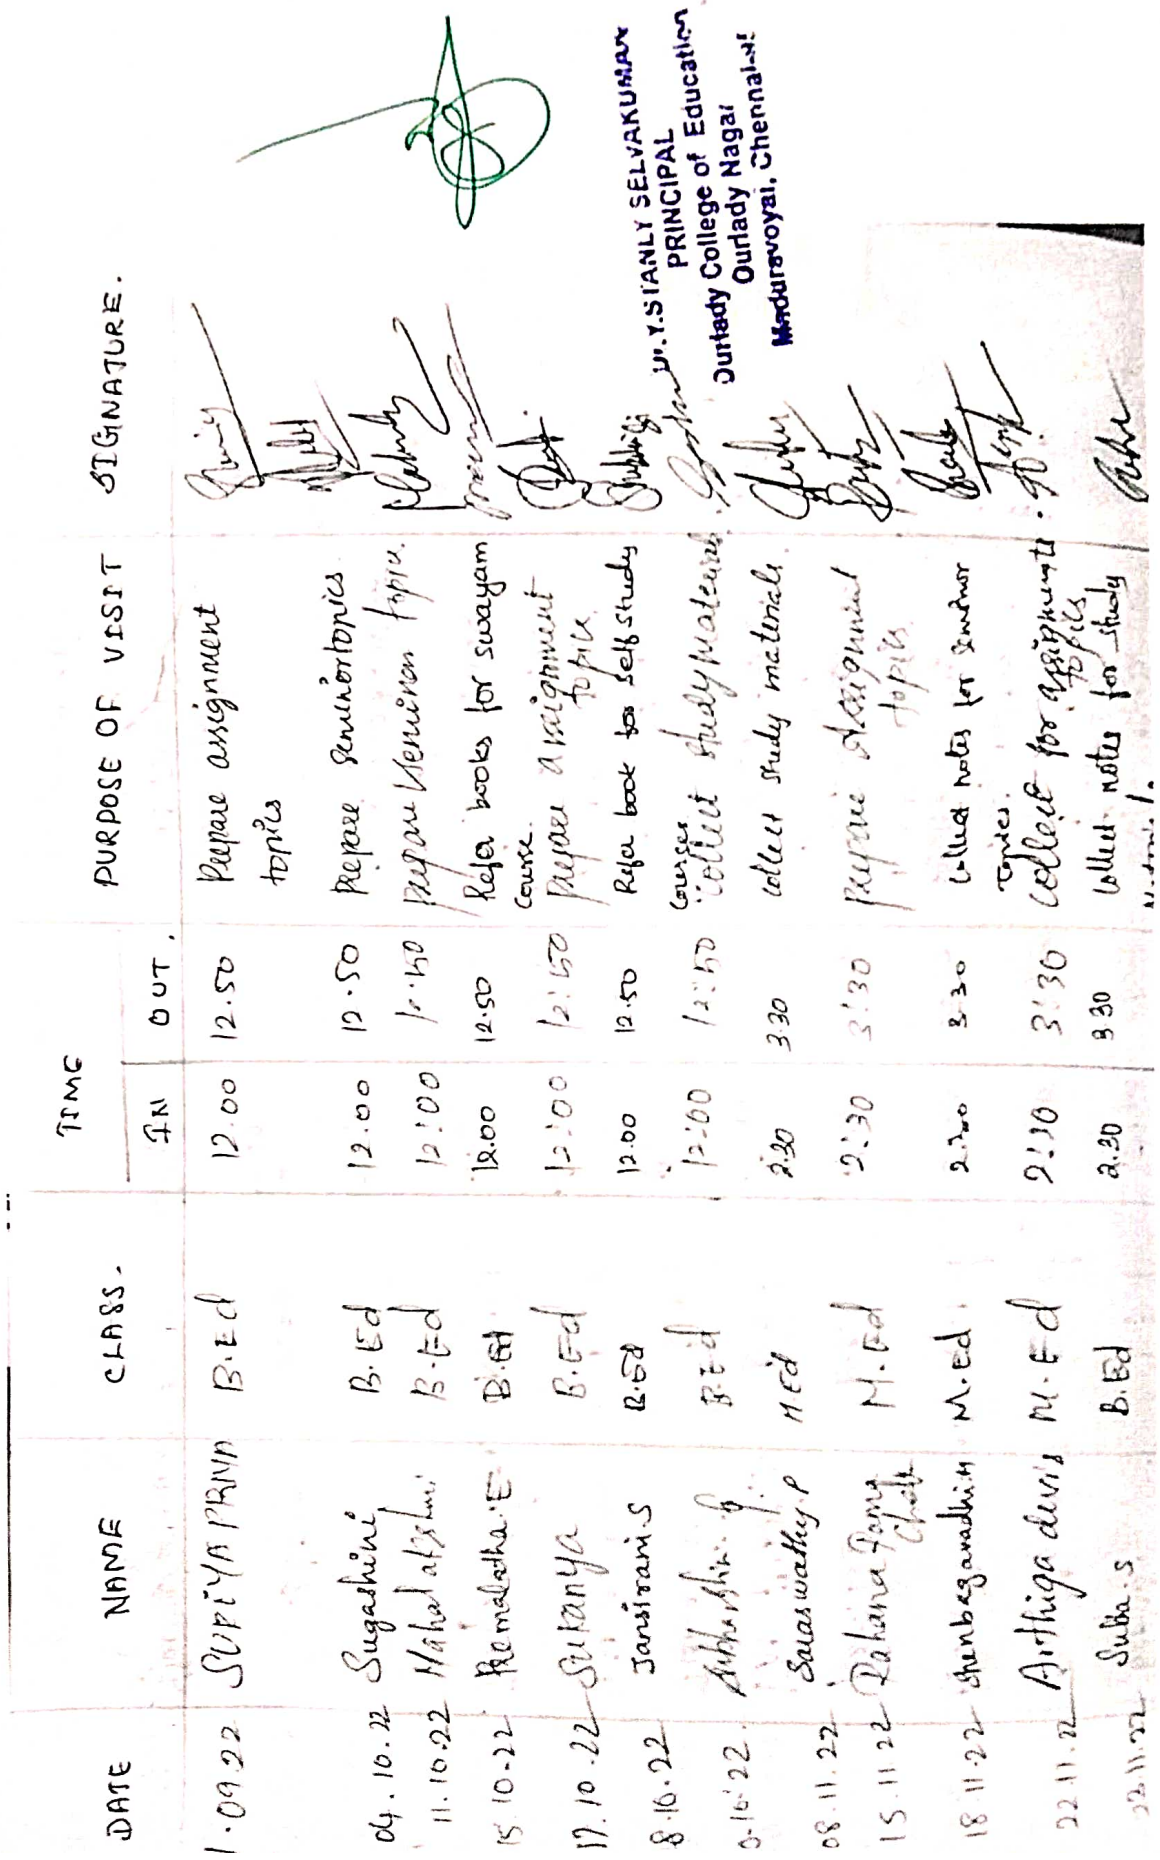 DATE NAME CLASS. TIME PURPOSE OF VISIT SIGNATURE.
IN OUT.
1.09.22 SUPIYA PRIYA B.Ed 12.00 12.50 Prepare assignment
topics
04.10.22 Sugashini B.Ed 12.00 12.50 Prepare seminortopics
11.10.22 Mahalakshmi B.Ed 12:00 12:50 prepare seminar topic.
15.10.22 Premalatha.E B.Ed 12.00 12.50 Refer books for swayam
course.
17.10.22 Sukanya B.Ed 12:00 12:50 Prepare assignment
topic
8.10.22 Jansirani.S B.Ed 12.00 12.50 Refer book for self study
courses
.10.22. B.Ed 12:00 12:50 collect study materials.
08.11.22 Saraswathy.P M.Ed 2.30 3.30 collect study materials.
15.11.22 Rahaina M.Ed 2:30 3:30 prepare Assignment
topics
18.11.22 Shenbagavadhi.M M.Ed. 2.30 3.30 Collect notes for seminor
Topics.
22.11.22 Arthiga devi.s M.Ed 2:30 3:30 Collect for assignments.
topics
22.11.22 Subha.S B.Ed 2.30 3.30 Collect notes for study
Y.STANLY SELVAKUMAR
PRINCIPAL
Ourlady College of Education
Ourlady Nagar
Maduravoyal, Chennai